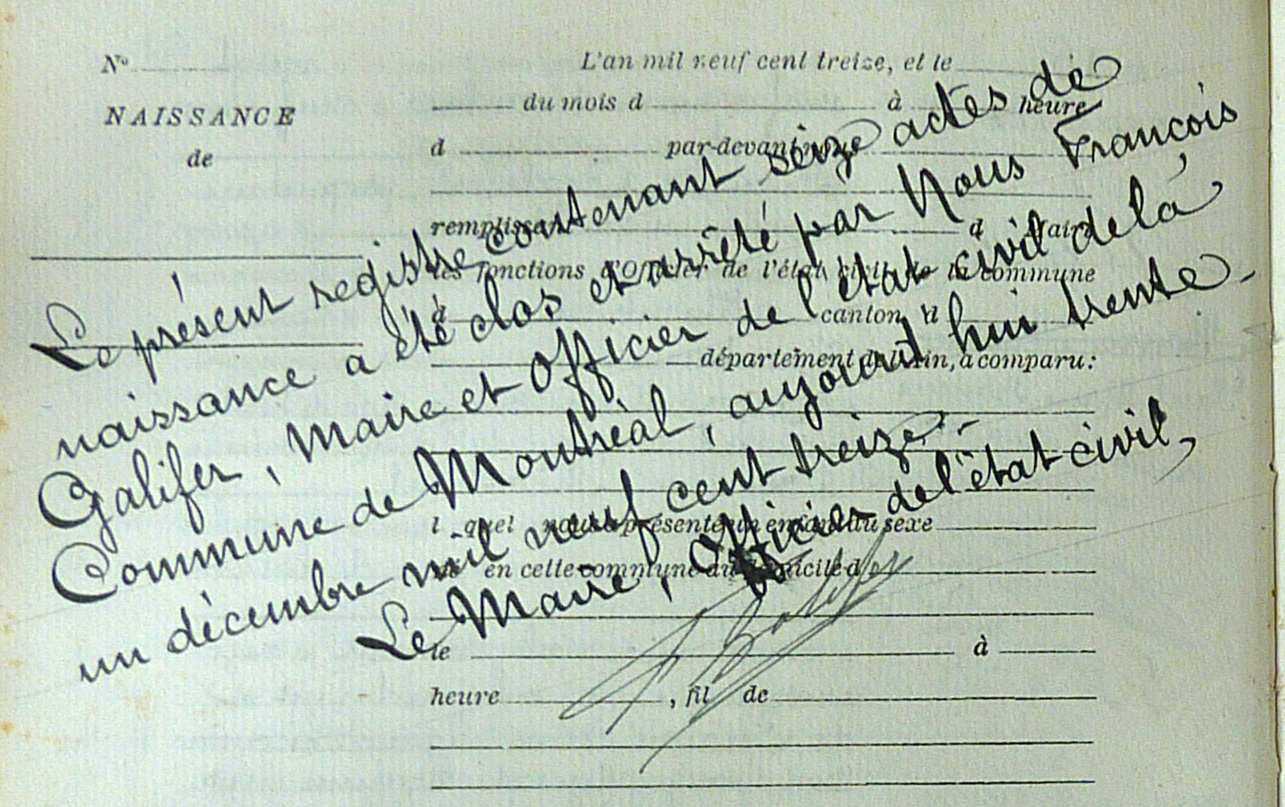 N° L'an mil neuf cent treize, et le
NAISSANCE du mois d à heure
de d par-devant nous
remplissant d Maire
les fonctions d'Officier de l'état civil de la commune
d canton d
département de l'Ain, a comparu:
l quel nous a présenté un enfant du sexe
né en cette commune au domicile d
le à
heure , fil de
Le présent registre contenant seize actes de
naissance a été clos et arrêté par Nous François
Galifer, Maire et Officier de l'état civil de la
Commune de Montréal, aujourd'hui trente-
un décembre mil neuf cent treize.-
Le Maire, Officier de l'état civil,